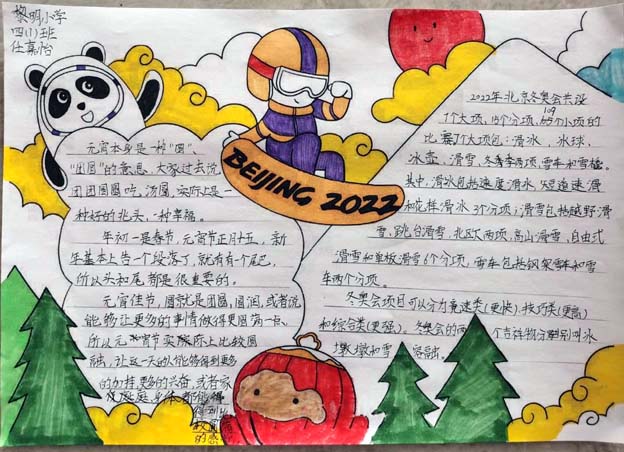 黎明小学
四(1)班
任嘉怡
元宵本身是一种"圆"、
"团圆"的意思,大家过去说
团团圆圆吃汤圆,实际上是一
种好的兆头,一种幸福。
年初一是春节,元宵节正月十五,新
年基本上告一个段落了,就有有个尾巴,
所以头和尾都是很重要的。
元宵佳节,圆就是团圆,圆润,或者说
能够让更多的事情做得更圆满一点、
所以元宵节实际上比较圆
融,让这一天的人能够得到更多
的加持,更多的兴奋,或者家
庭 身体 都能够
得到
的感
BEIJING 2022
2022年北京冬奥会共设
7个大项,15个分项,109个小项的
比赛7个大项包:滑冰、冰球、
冰壶、滑雪、冬季两项、雪车和雪橇。
其中,滑冰包括速度滑冰、短道速滑
和花样滑冰3个分项;滑雪包括越野滑
雪、跳台滑雪、北欧两项、高山滑雪、自由式
滑雪和单板滑雪6个分项,雪车包括钢架雪车和雪
车两个分项。
冬奥会项目可以分为竞速类(更快)、技巧类(更高)
和综合类(更强)。冬奥会的两个吉祥物分别叫冰
墩墩和雪容融。